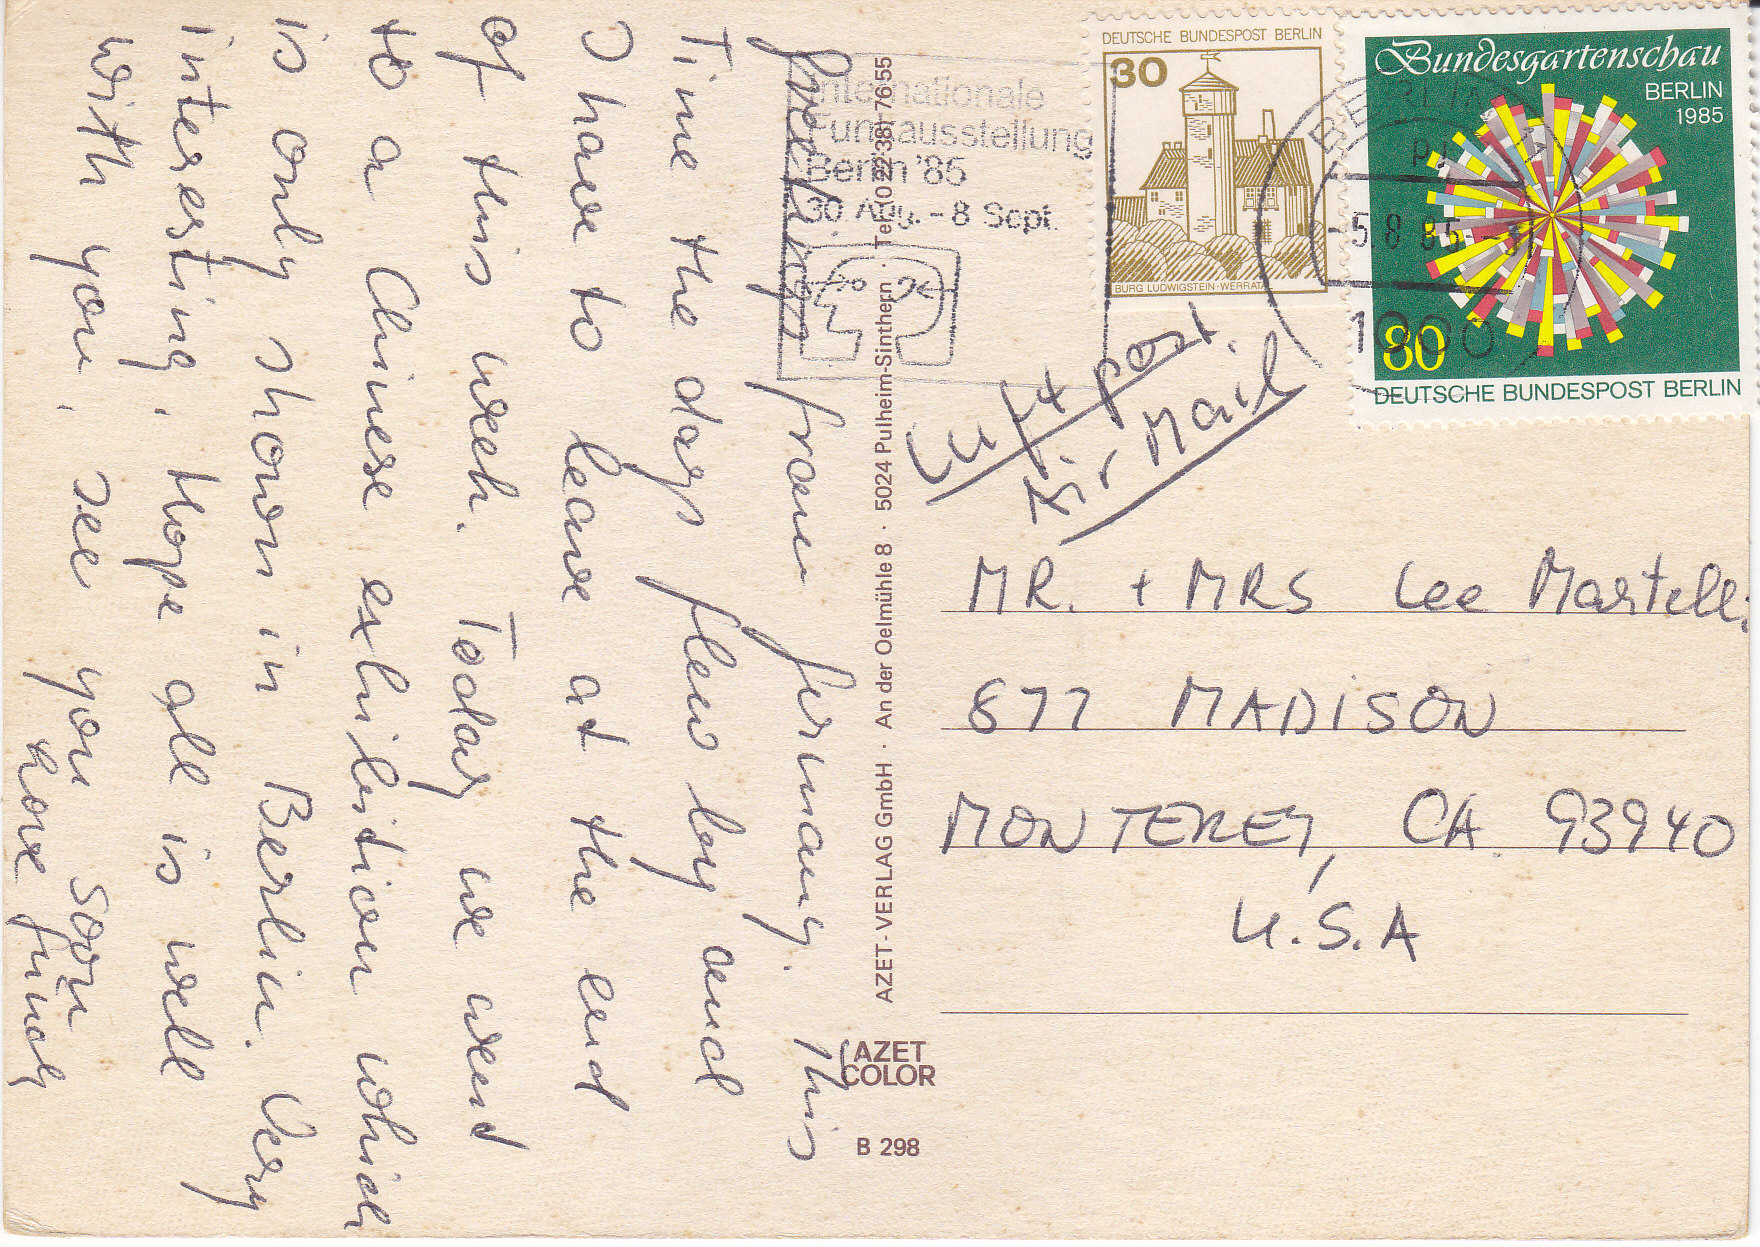 Greetings from Germany. This
Time the days flew by and
I have to leave at the end
of this week. Today we went
to a Chinese exhibition which
is only shown in Berlin. Very
interesting. Hope all is well
with you. See you soon
Love
AZET-VERLAG GmbH · An der Oelmühle 8 · 5024 Pulheim-Sinthern · Tel. (02238) 7655
AZET
COLOR
B 298
Internationale
Funkausstellung
Berlin '85
30 Aug. - 8 Sept.
DEUTSCHE BUNDESPOST BERLIN
30
BURG LUDWIGSTEIN·WERRATAL
Bundesgartenschau
BERLIN
1985
80
DEUTSCHE BUNDESPOST BERLIN
BERLIN
5.8.85
1000
Luftpost
Air Mail
MR. + MRS Lee Martelli
877 MADISON
MONTEREY, CA. 93940
U.S.A